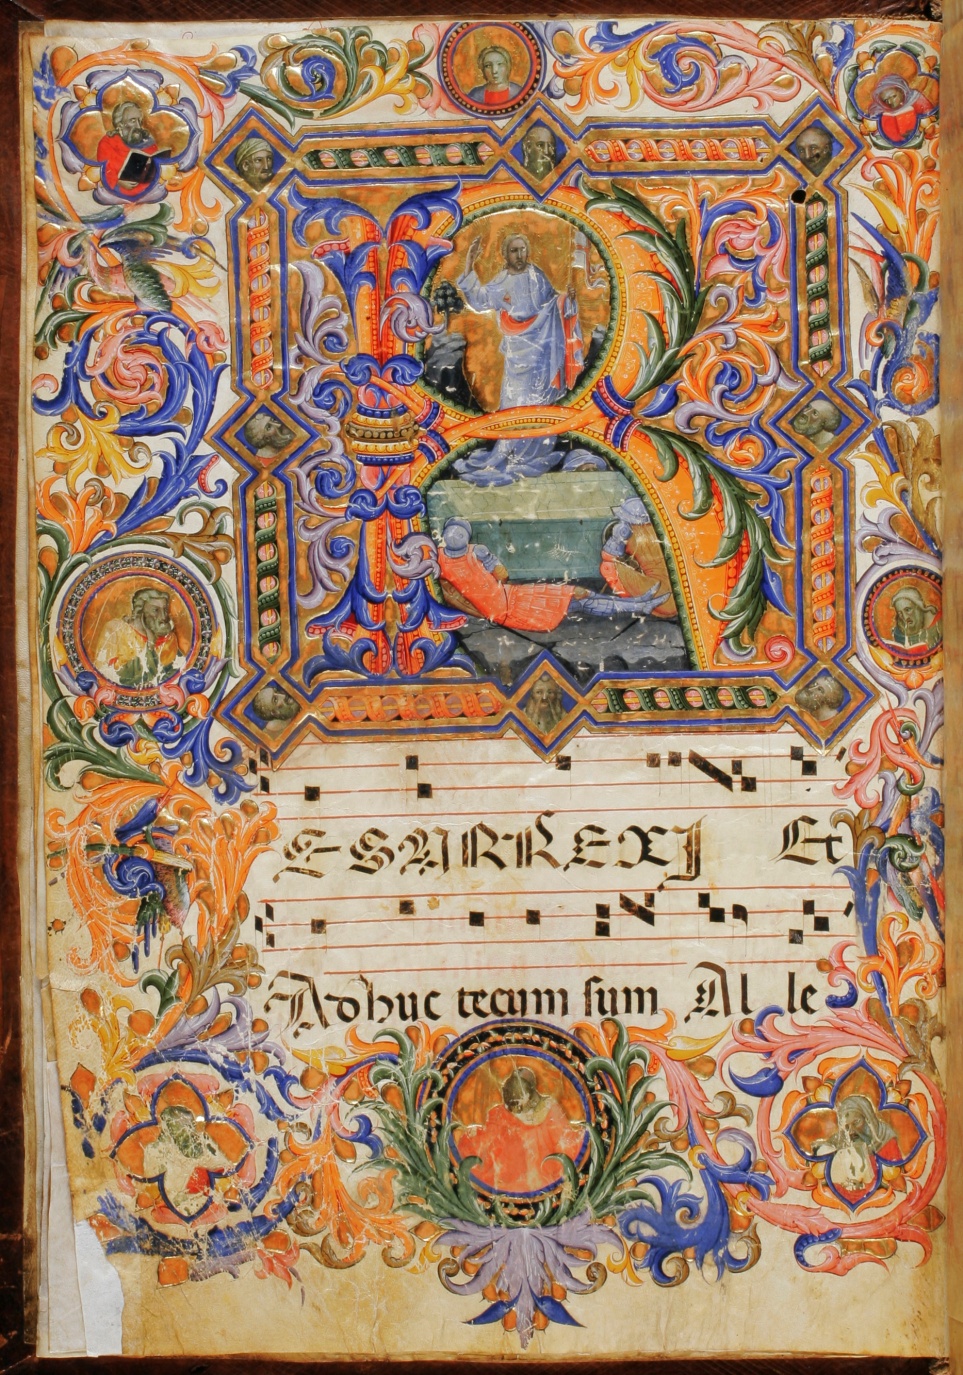 R
ESURREXI Et
Adhuc tecum sum Al le